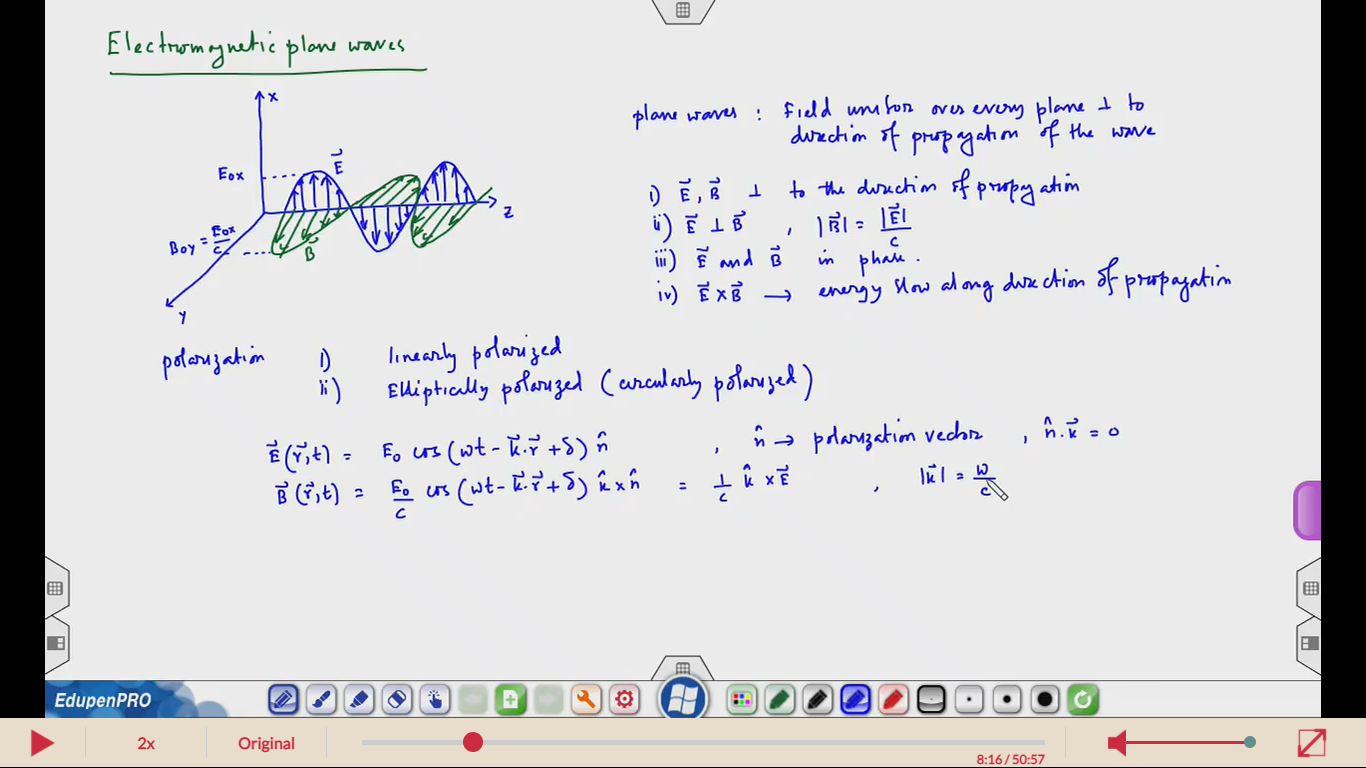 Electromagnetic plane waves
x
E⃗
E₀ₓ
z
B₀y = E₀ₓ/c
B⃗
y
plane waves : Field unifor over every plane ⊥ to
direction of propagation of the wave
i) E⃗, B⃗ ⊥ to the direction of propagation
ii) E⃗ ⊥ B⃗ , |B⃗| = |E⃗|/c
iii) E⃗ and B⃗ in phase.
iv) E⃗ × B⃗ → energy flow along direction of propagation
polarization i) linearly polarized
ii) Elliptically polarized (circularly polarized)
E⃗(r⃗,t) = E₀ cos(ωt - k⃗.r⃗ + δ) n̂ , n̂ → polarization vector , n̂.k⃗ = 0
B⃗(r⃗,t) = E₀/c cos(ωt - k⃗.r⃗ + δ) k̂ × n̂ = 1/c k̂ × E⃗ , |k⃗| = ω/c
EdupenPRO
2x
Original
8:16 / 50:57